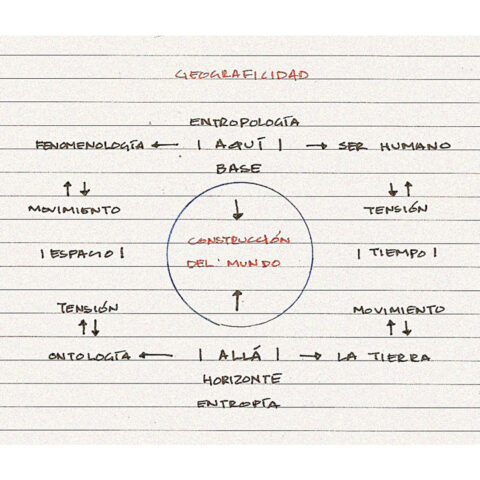 GEOGRAFICIDAD
ENTROPOLOGÍA
FENOMENOLOGÍA ← | AQUÍ | → SER HUMANO
BASE
↑↓ ↓ ↓↑
MOVIMIENTO TENSIÓN
CONSTRUCCIÓN
| ESPACIO | | TIEMPO |
DEL MUNDO
TENSIÓN ↑ MOVIMIENTO
↑↓ ↑↓
ONTOLOGÍA ← | ALLÁ | → LA TIERRA
HORIZONTE
ENTROPÍA